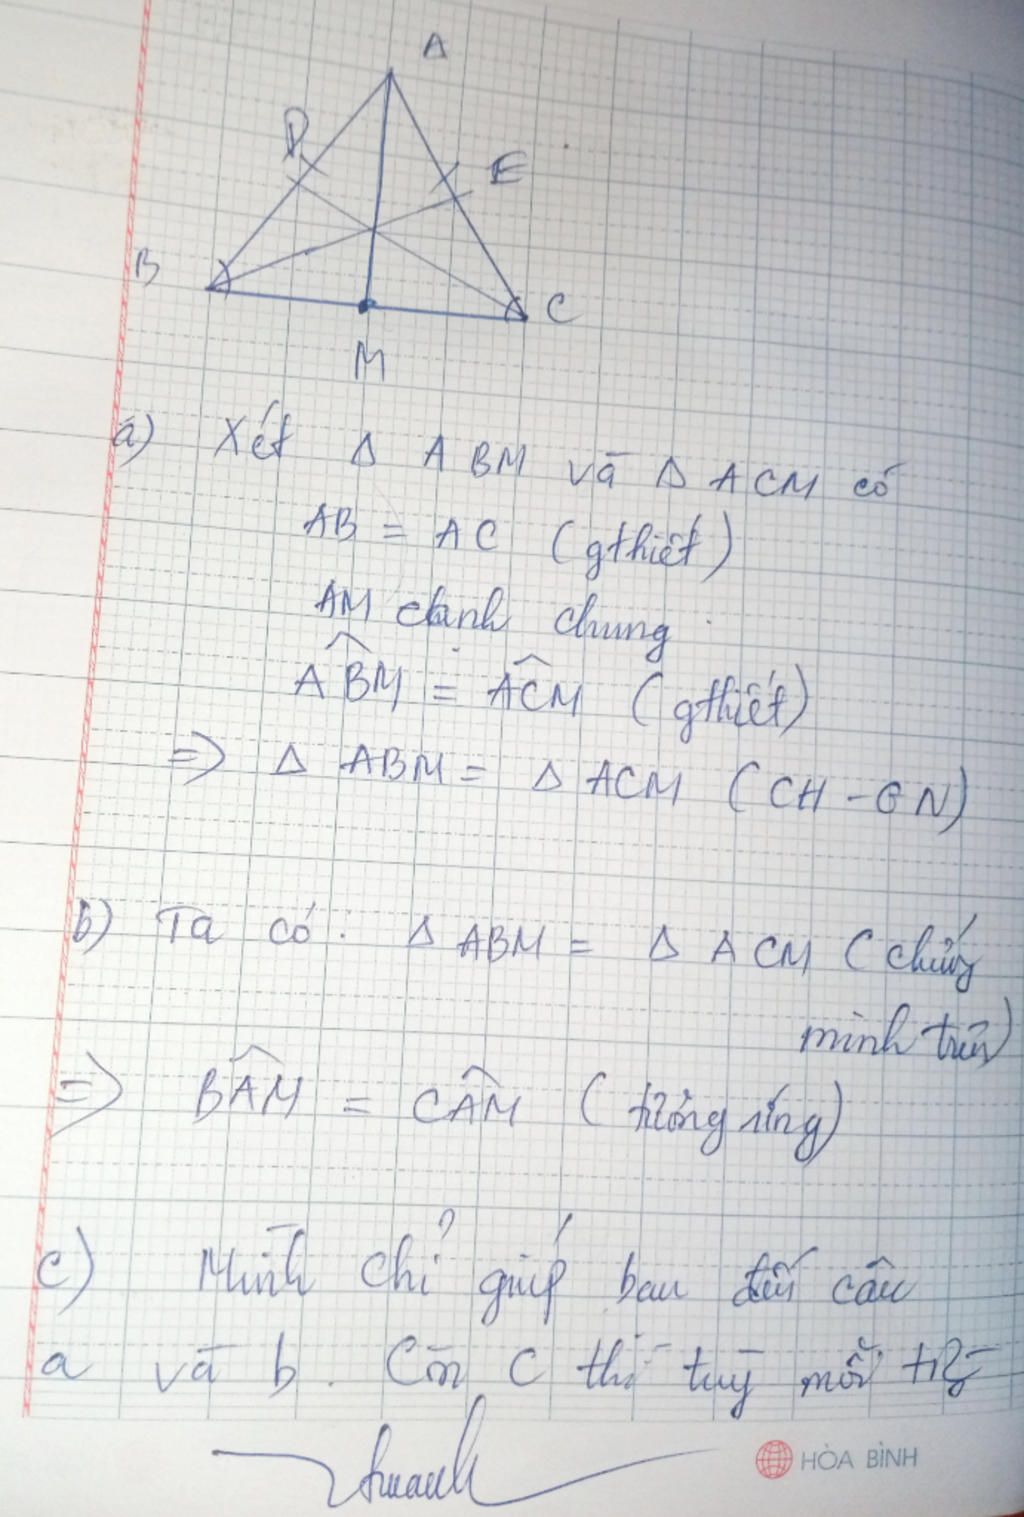 A
D
E
B
C
M
a) Xét Δ ABM và Δ ACM có
AB = AC (gthiết)
AM cạnh chung
ABM̂ = AĈM (gthiết)
=> Δ ABM = Δ ACM (CH - GN)
b) Ta có: Δ ABM = Δ ACM (chứng
minh trên)
=> BÂM = CÂM (tương ứng)
c) Mình chỉ giúp bạn đến câu
a và b. Còn C thì tuỳ mỗi
HÒA BÌNH